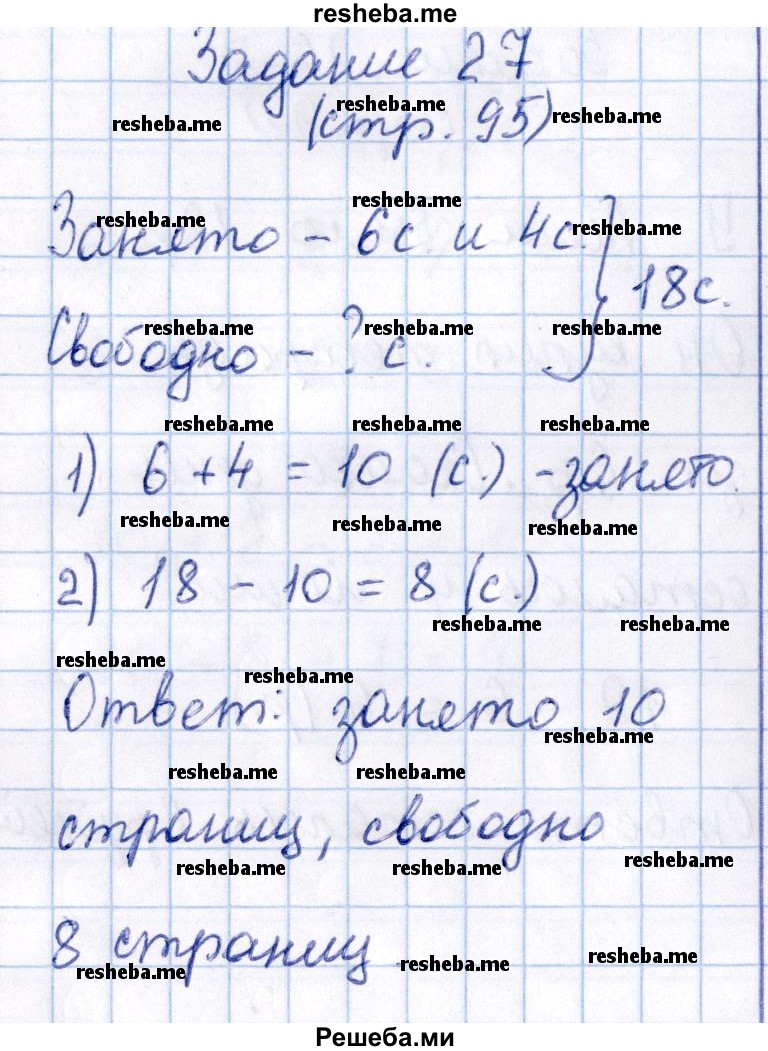 resheba.me
Задание 27
resheba.me resheba.me resheba.me
(стр. 95)
resheba.me resheba.me resheba.me
Занято - 6с. и 4с.
18с.
resheba.me resheba.me resheba.me
Свободно - ? с.
resheba.me resheba.me resheba.me
1) 6 + 4 = 10 (с.) - занято.
resheba.me resheba.me resheba.me
2) 18 - 10 = 8 (с.)
resheba.me resheba.me
resheba.me resheba.me
Ответ: занято 10
resheba.me
resheba.me resheba.me
страниц, свободно
resheba.me resheba.me resheba.me
8 страниц
resheba.me resheba.me resheba.me
Решеба.ми